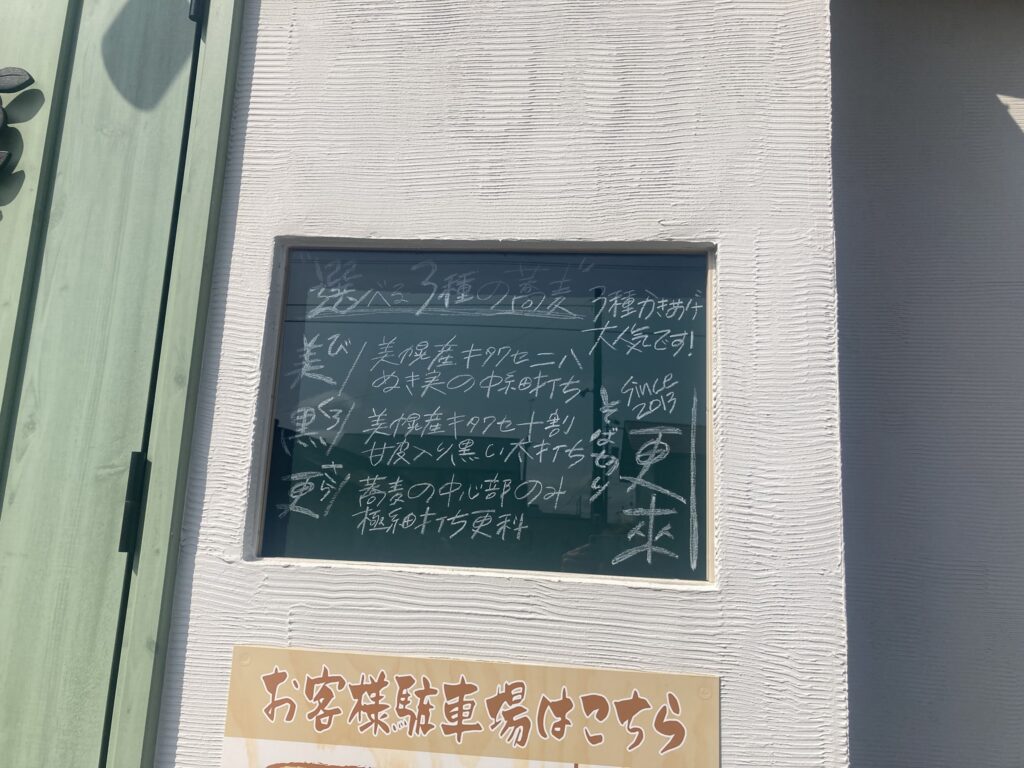 "選べる3種の蕎麦"
美 び
美幌産キタワセ二八
ぬき実の中細打ち
黒 くろ
美幌産キタワセ十割
甘皮入り黒い太打ち
更 さら
蕎麦の中心部のみ
極細打ち更科
3種かきあげ
大人気です!
since
2013
そば切り
更来
お客様駐車場はこちら